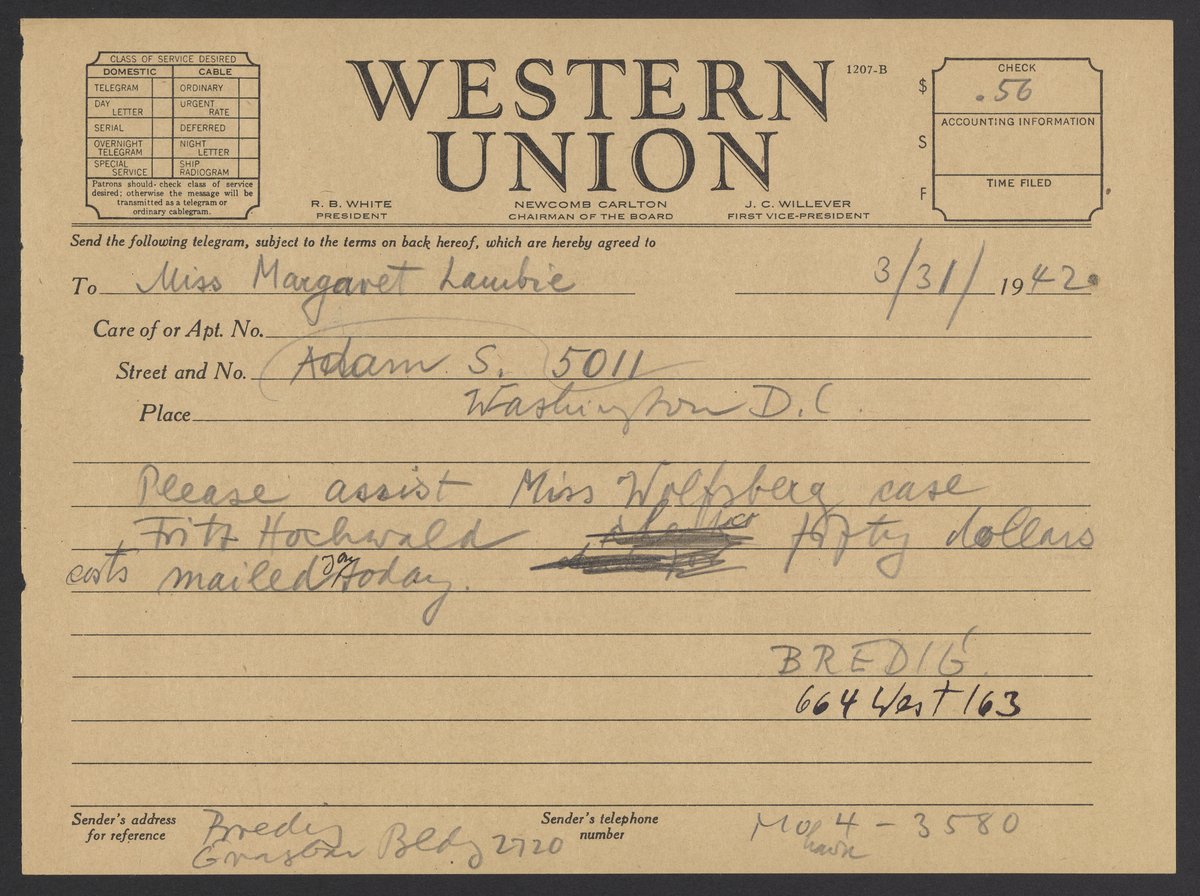 CLASS OF SERVICE DESIRED
DOMESTIC CABLE
TELEGRAM ORDINARY
DAY LETTER URGENT RATE
SERIAL DEFERRED
OVERNIGHT TELEGRAM NIGHT LETTER
SPECIAL SERVICE SHIP RADIOGRAM
Patrons should check class of service
desired; otherwise the message will be
transmitted as a telegram or
ordinary cablegram.
WESTERN
UNION
1207-B
$ CHECK
.56
S ACCOUNTING INFORMATION
F TIME FILED
R. B. WHITE
PRESIDENT
NEWCOMB CARLTON
CHAIRMAN OF THE BOARD
J. C. WILLEVER
FIRST VICE-PRESIDENT
Send the following telegram, subject to the terms on back hereof, which are hereby agreed to
To Miss Margaret Lambie 3/31/ 1942
Care of or Apt. No.
Street and No. Adam S. 5011
Place Washington D.C.
Please assist Miss Wolfsberg case
Fritz Hochwald fifty dollars
costs mailed today.
BREDIG
664 West 163
Sender's address
for reference
Bredig
Bldg 2720
Sender's telephone
number
Mohawk 4-3580